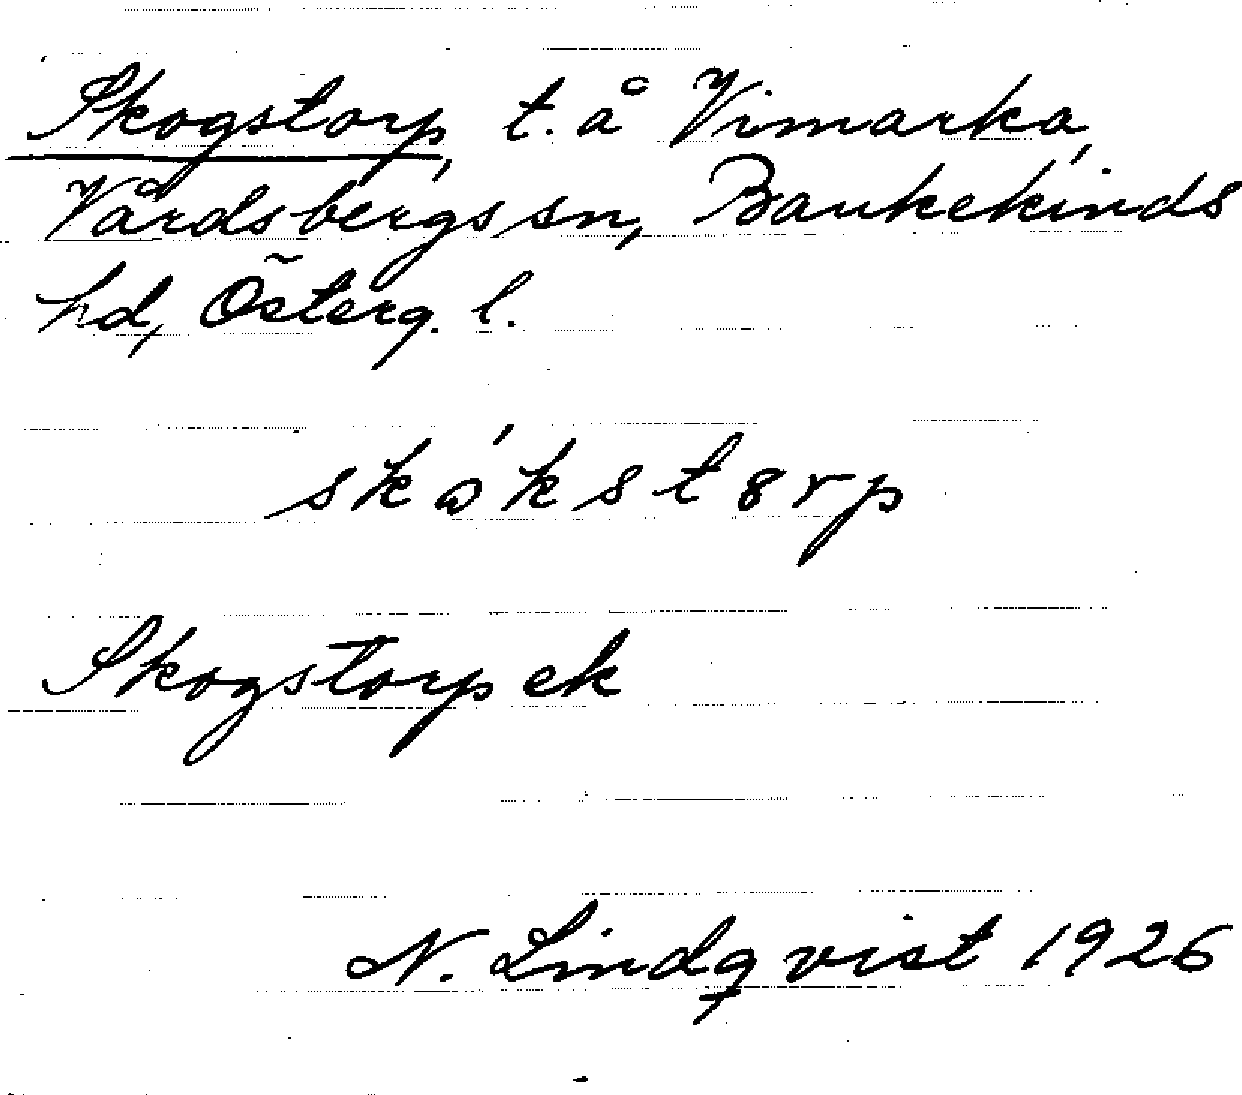 Skogstorp, t. å Vimarka,
Vårdsbergs sn, Bankekinds
hd, Österg. l.
skɷ́kstɞrp
Skogstorp ek
N. Lindqvist 1926